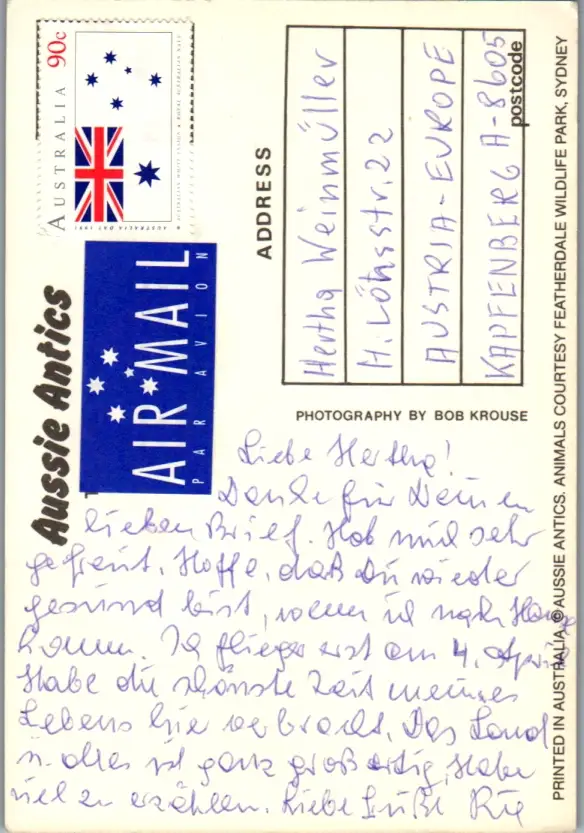 AUSTRALIA 90c
AUSTRALIA DAY 1991
Aussie Antics
AIR MAIL
PAR AVION
ADDRESS
Hertha Weinmüller
H. Lönsstr. 22
AUSTRIA-EUROPE
KAPFENBERG A-8605
postcode
PHOTOGRAPHY BY BOB KROUSE
PRINTED IN AUSTRALIA © AUSSIE ANTICS. ANIMALS COURTESY FEATHERDALE WILDLIFE PARK, SYDNEY
Liebe Hertha!
Danke für Deinen
lieben Brief. Hab mich sehr
gefreut. Hoffe, daß Du wieder
gesund bist, wenn ich nach Hause
komme. Ich fliege erst am 4. April
Habe die schönste Zeit meines
Lebens hier verbracht. Das Land
u. alles ist ganz großartig. Habe
viel zu erzählen. Liebe Grüße